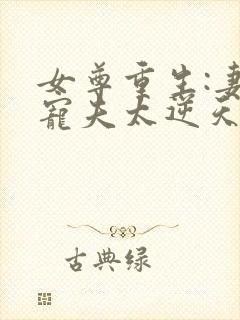 女尊重生:妻
寵夫太逆天
古典绿